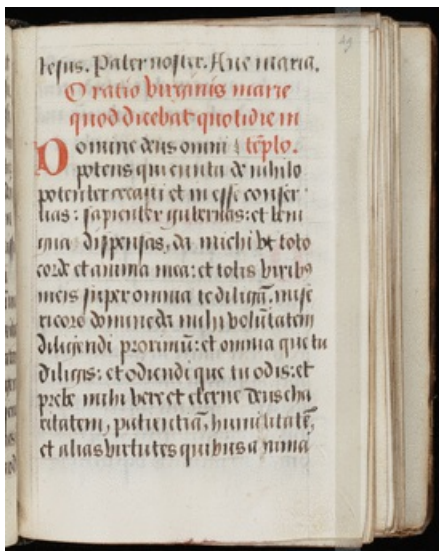 Iesus. Pater noster. Aue maria.
Oratio virginis marie
quod dicebat quotidie in
Domine deus omni templo.
potens qui cuncta de nihilo
potenter creasti et in esse conser
uas: sapienter gubernas: et beni
gna dispensas, da michi vt toto
corde et anima mea: et totis viribus
meis super omnia te diligã. mise
ricors domine da mihi volũtatem
diligendi proximũ: et omnia que tu
diligis: et odiendi que tu odis: et
prebe mihi vere et eterne deus cha
ritatem, patientiã, humilitatẽ,
et alias virtutes quibus anima